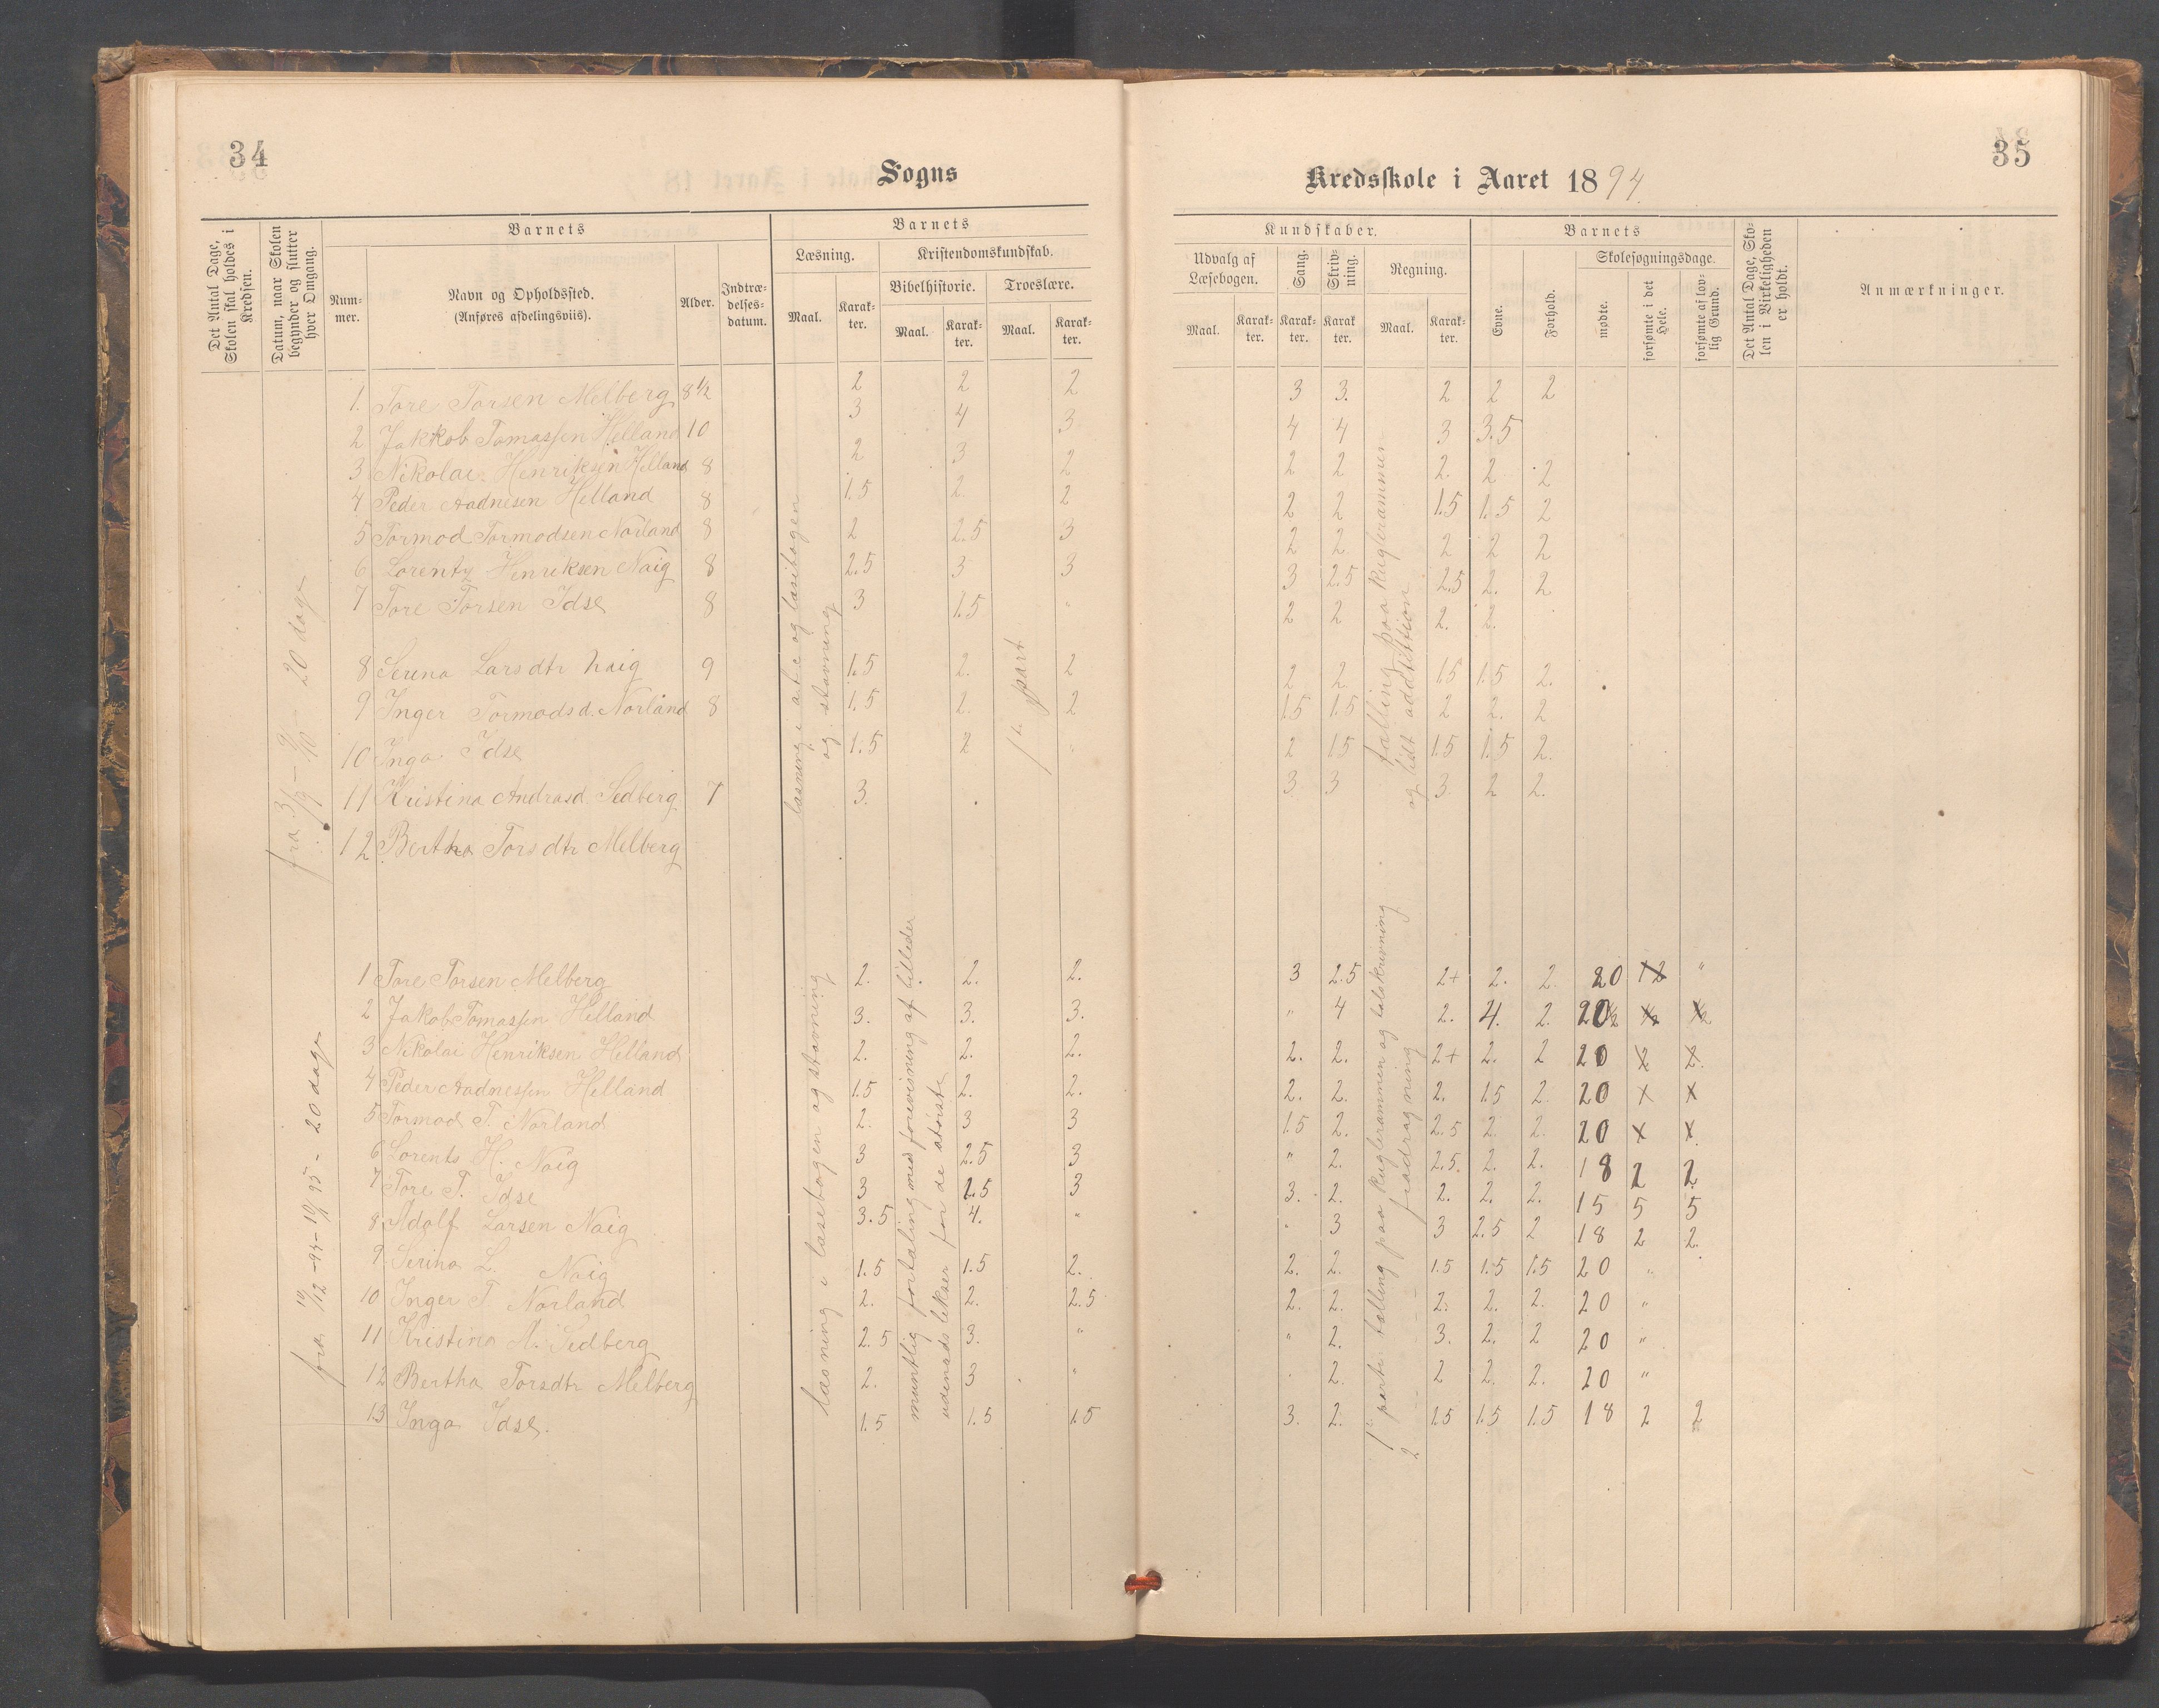 34
Sogns
Det Antal Dage, Skolen skal holdes i Kredsen.
Datum, naar Skolen begynder og slutter hver Omgang.
Barnets
Num-mer.
Navn og Opholdssted.
(Anføres afdelingsviis).
Alder.
Indtræ-delses-datum.
Barnets
Læsning.
Maal.
Karak-ter.
Kristendomskundskab.
Bibelhistorie.
Maal.
Karak-ter.
Troeslære.
Maal.
Karak-ter.
fra 3/9 - 9/10 - 20 dage
læsning i abc og læsebogen
og stavning
1ste part
1. Tore Torsen Melberg 8½ 2 2 2
2 Jakkob Tomassen Helland 10 3 4 3
3 Nikolai Henriksen Helland 8 2 3 2
4 Peder Aadnesen Helland 8 1.5 2. 2
5 Tormod Tormodsen Norland 8 2 2.5 3
6 Lorentz Henriksen Naig 8 2.5 3 3
7 Tore Torsen Idse 8 3 1.5 "
8 Serina Larsdtr Naig 9 1.5 2. 2
9 Inger Tormodsd. Norland 8 1.5 2. 2
10 Inga Idse 1.5 2 "
11 Kristina Andrasd. Sedberg 7 3.
12 Bertha Torsdtr Melberg
fra 10/12 -94 - 19/1 95 - 20 dage
læsning i læsebogen og stavning
muntlig fortaling med forevisning af billeder
udenads lekser for de største
1 Tore Torsen Melberg 2. 2. 2.
2 Jakob Tomassen Helland 3. 3. 3.
3 Nikolai Henriksen Helland 2. 2. 2.
4 Peder Aadnessen Helland 1.5 2. 2.
5 Tormod T. Norland 2. 3 3
6 Lorents H. Naig 3 2.5 3
7 Tore T. Idse 3 2.5 3
8 Adolf Larsen Naig 3.5 4. "
9 Serina L. Naig 1.5 1.5 2.
10 Inger T. Norland 2. 2. 2.5
11 Kristina A. Sedberg 2.5 3. "
12 Bertha Torsdtr Melberg 2. 3 "
13 Inga Idse. 1.5 1.5 1.5
35
Kredsskole i Aaret 1894.
Kundskaber.
Udvalg af Læsebogen.
Maal.
Karak-ter.
Sang.
Karak-ter.
Skriv-ning.
Karak-ter.
Regning.
Maal.
Karak-ter.
Barnets
Evne.
Forhold.
Skolesøgningsdage.
mødte.
forsømte i det Hele.
forsømte af lov-lig Grund.
Det Antal Dage, Sko-len i Virkeligheden er holdt.
Anmærkninger.
tælling paa kuglerammen
og lidt addtition
3 3. 2 2 2
4 4 3 3.5
2 2 2. 2 2
2 2 1.5 1.5 2
2 2 2 2 2
3 2.5 2.5 2. 2
2 2 2. 2.
2 2 1.5 1.5 2.
1.5 1.5 2 2. 2
2 1.5 1.5 1.5 2.
3 3 3. 2 2.
1ste parti tælling paa kuglerammen og talskrivning
2 - - - fradragning
3 2.5 2+ 2. 2. 20 "
" 4 2. 4. 2. 20
2. 2. 2+ 2. 2 20
2. 2. 2. 1.5 2. 20
1.5 2. 2.5 2. 2. 20
" 2. 2.5. 2. 2. 18 2 2
3. 2. 2. 2. 2. 15 5 5
3 3 2.5 2 18 2 2
2. 2. 1.5 1.5 1.5 20 "
2. 2. 2. 2. 2. 20 "
" 2. 3. 2. 2 20 "
2. 2 2. 2. 20 "
3. 2. 1.5 1.5 1.5 18 2 2